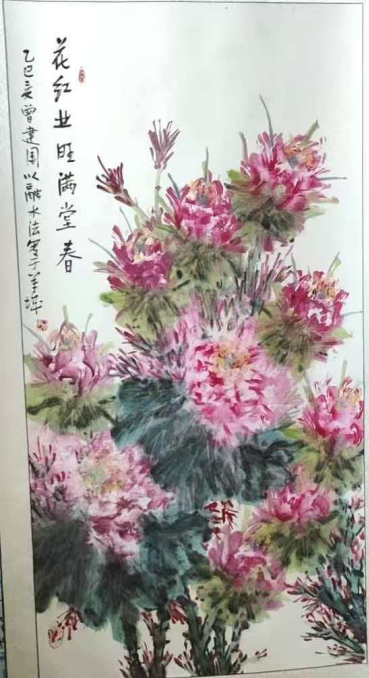 花红业旺满堂春
乙巳之夏曾建国以融水法写于羊城